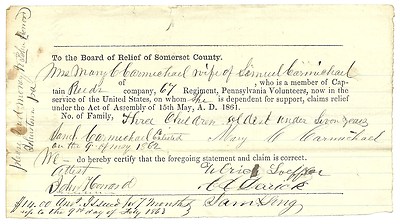 To the Board of Relief of Somerset County.
Mrs Mary C Carmichael wife of Simuel Carmichael
who is a member of Cap-
tain Reeds company, 67 Regiment, Pennsylvania Volunteers, now in
the service of the United States, on whom She is dependent for support, claims relief
under the Act of Assembly of 15th May, A. D. 1861.
No. of Family, Three Children oldest under Seven years
Saml Carmichael Enlisted Mary C Carmichael
on the 9 of may 1862
We do hereby certify that the foregoing statement and claim is correct.
Attest
John Howard
$14.00 Amt. Issued for 7 Months Saml King
up to the 9nd day of July 1863